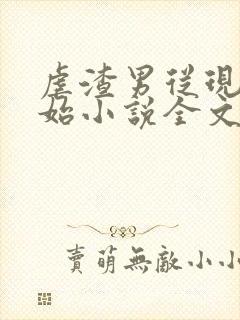 虐渣男從現
始小說全文
賣萌無敵小小